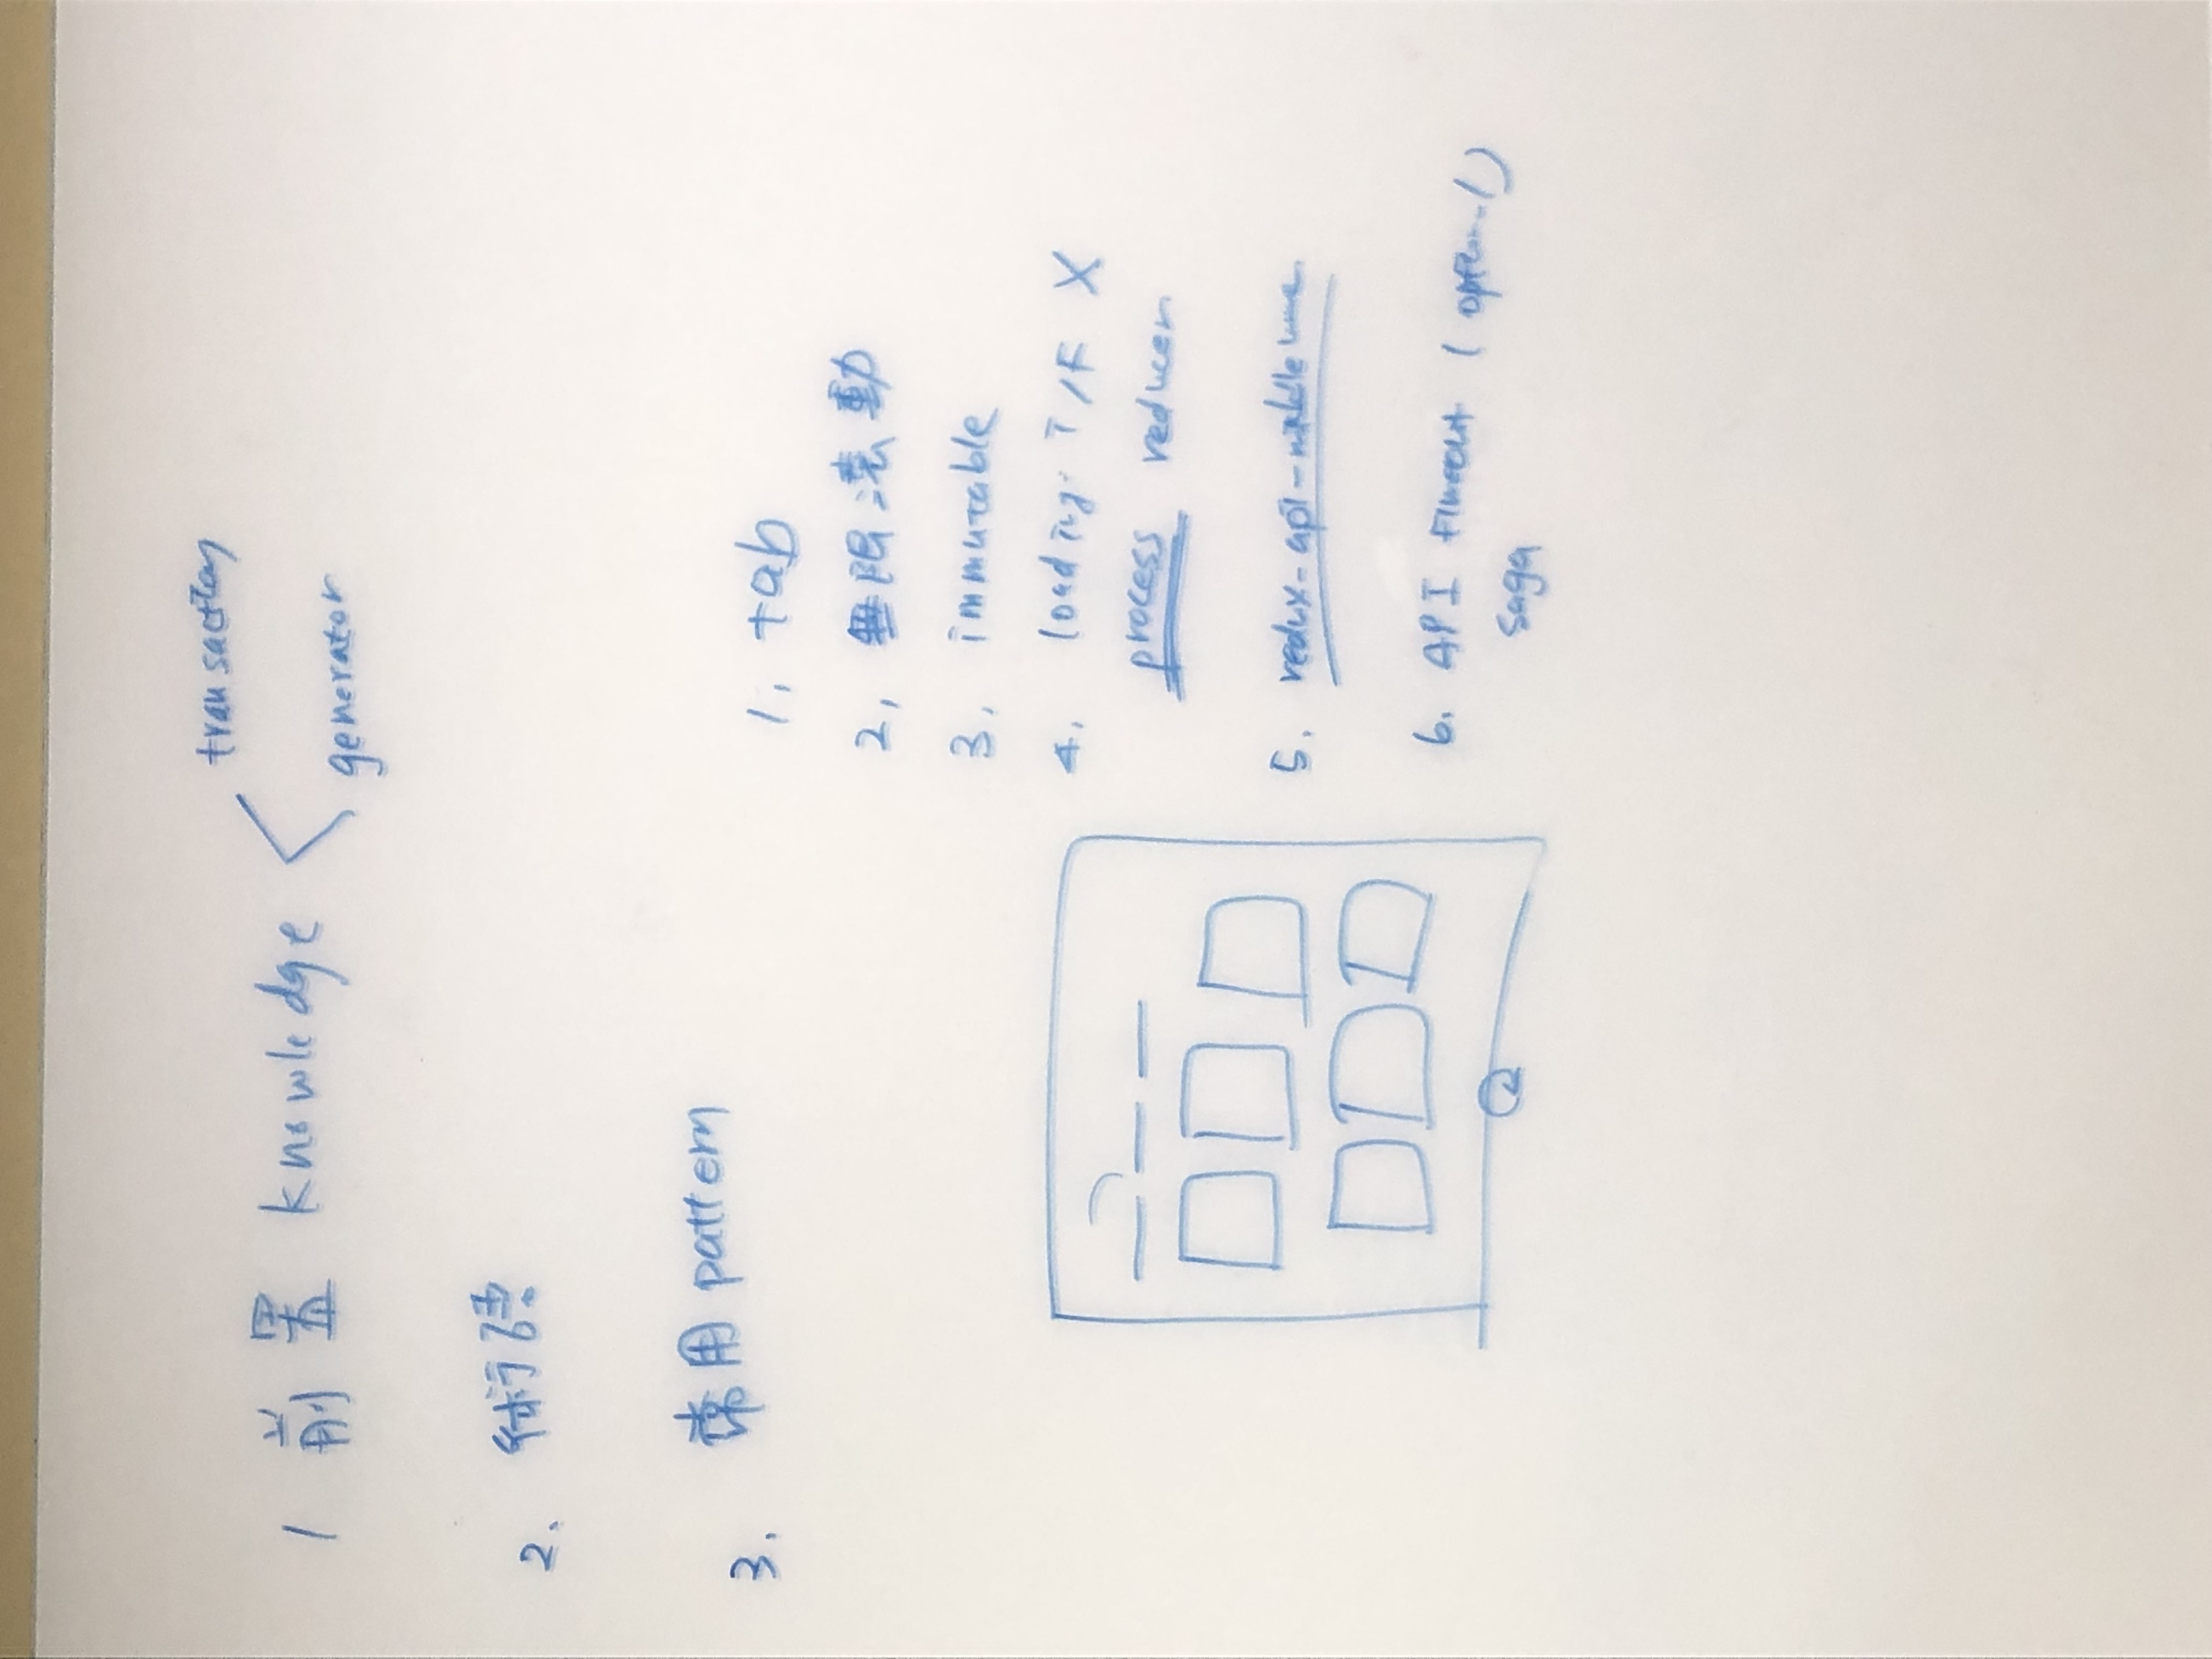 1 前置 knowledge
transaction
generator
2.
3. 常用 pattern
1. tab
2. 無限滾動
3. immutable
4. loading T/F X
process reducer
5. redux-api-middleware
6. API (optional)
saga